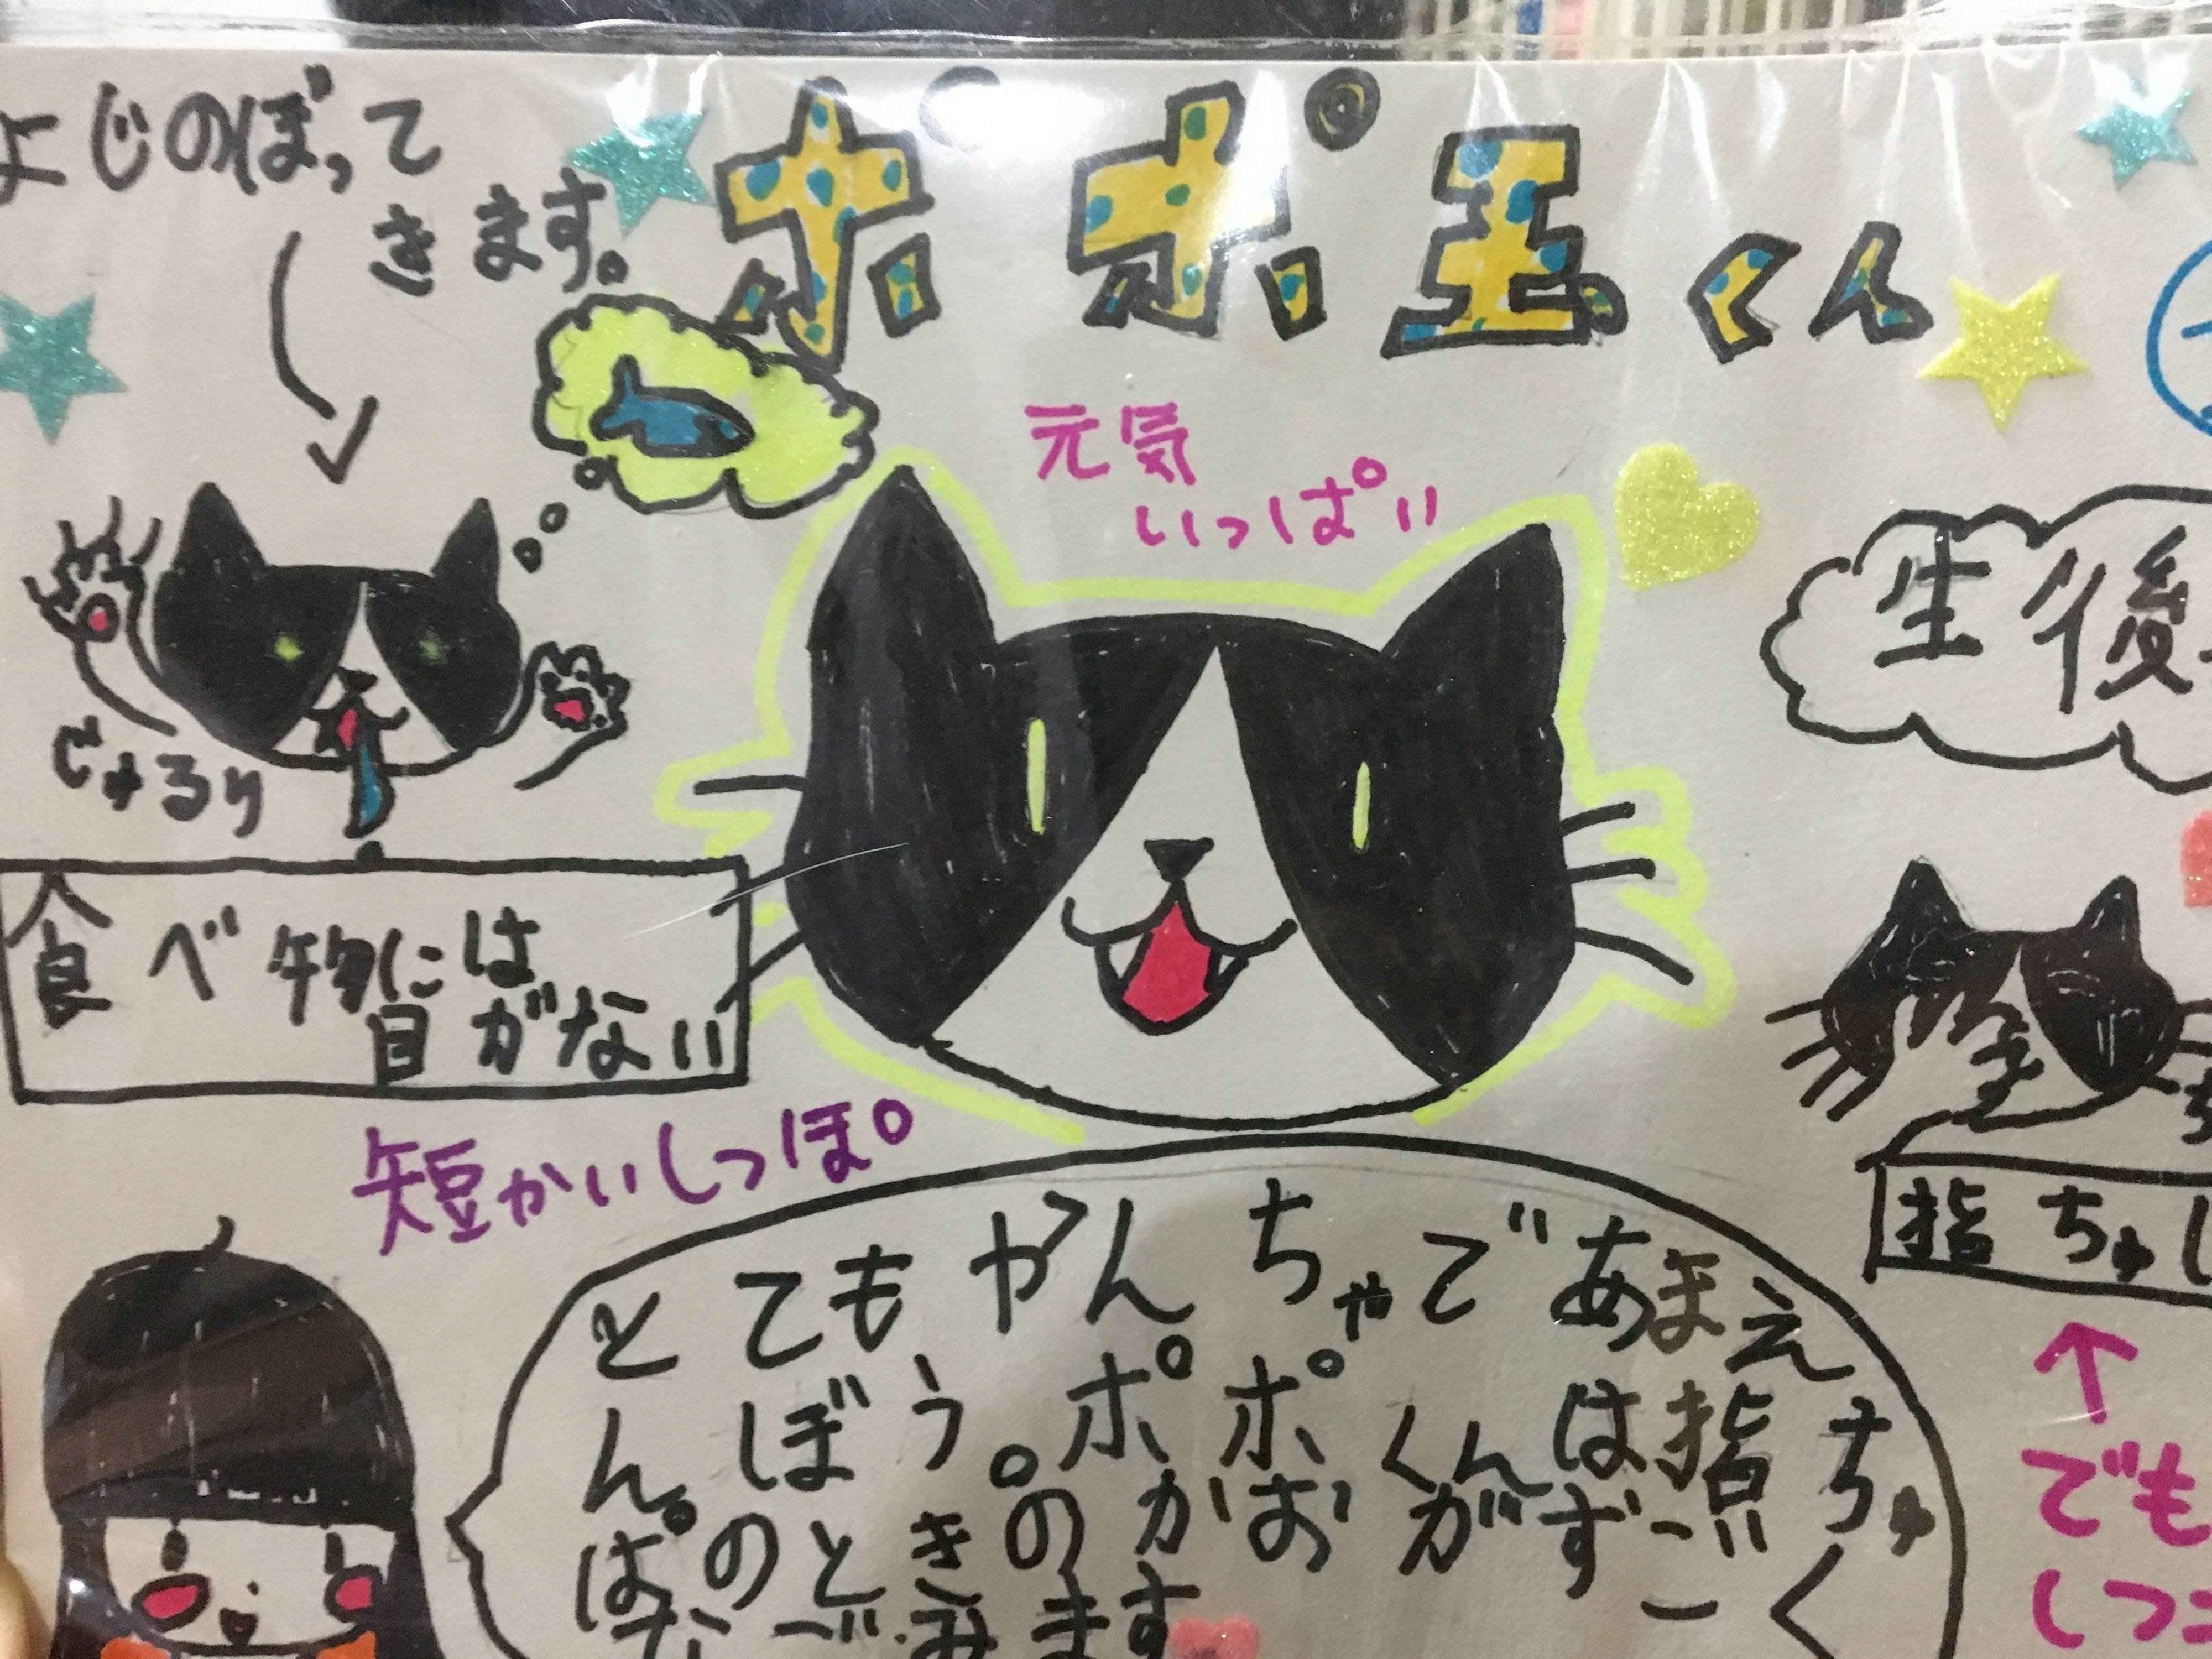 よじのぼって
きます。
ポポ玉くん
元気
いっぱい
生後
じゅるり
食べ物には
目がない
短かいしっぽ
指ちゅ
とてもやんちゃであまえ
んぼう。ポポくんは指ちゅ
ぱのときのかおがずごーく
なごみます
でも
しつ